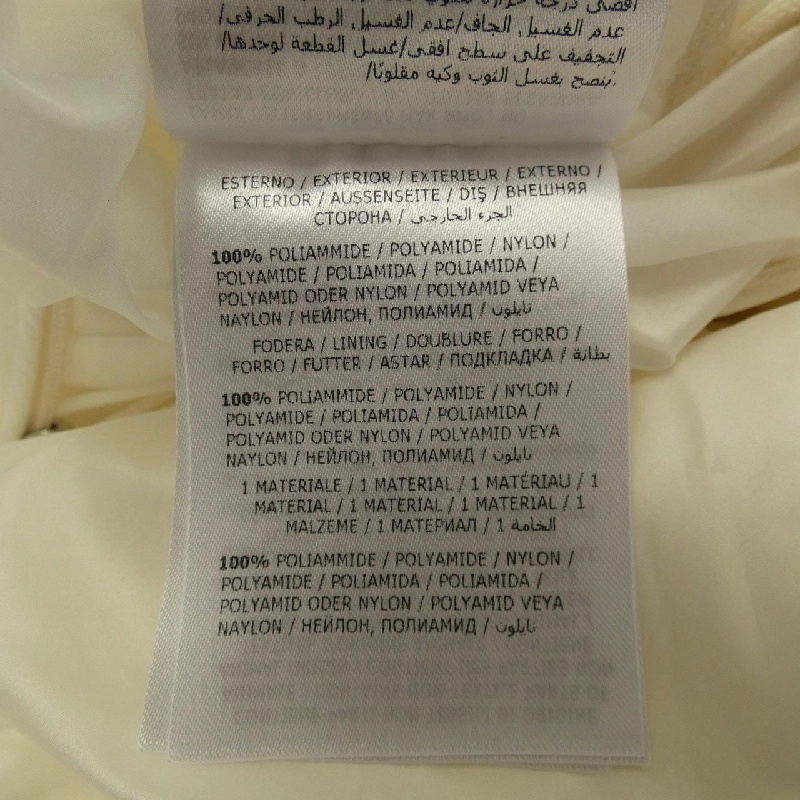 عدم الغسيل الجاف/عدم الغسيل الرطب الحرفي/
التجفيف على سطح افقي/غسل القطعة لوحدها/
ينصح بغسل الثوب وكيه مقلوبًا/
ESTERNO / EXTERIOR / EXTERIEUR / EXTERNO /
EXTERIOR / AUSSENSEITE / DIŞ / ВНЕШНЯЯ
СТОРОНА / الجزء الخارجي
100% POLIAMMIDE / POLYAMIDE / NYLON /
POLYAMIDE / POLIAMIDA / POLIAMIDA /
POLYAMID ODER NYLON / POLYAMID VEYA
NAYLON / НЕЙЛОН, ПОЛИАМИД / نايلون
FODERA / LINING / DOUBLURE / FORRO /
FORRO / FUTTER / ASTAR / ПОДКЛАДКА / بطانة
100% POLIAMMIDE / POLYAMIDE / NYLON /
POLYAMIDE / POLIAMIDA / POLIAMIDA /
POLYAMID ODER NYLON / POLYAMID VEYA
NAYLON / НЕЙЛОН, ПОЛИАМИД / نايلون
1 MATERIALE / 1 MATERIAL / 1 MATÉRIAU / 1
MATERIAL / 1 MATERIAL / 1 MATERIAL / 1
MALZEME / 1 МАТЕРИАЛ / 1 الخامة
100% POLIAMMIDE / POLYAMIDE / NYLON /
POLYAMIDE / POLIAMIDA / POLIAMIDA /
POLYAMID ODER NYLON / POLYAMID VEYA
NAYLON / НЕЙЛОН, ПОЛИАМИД / نايلون